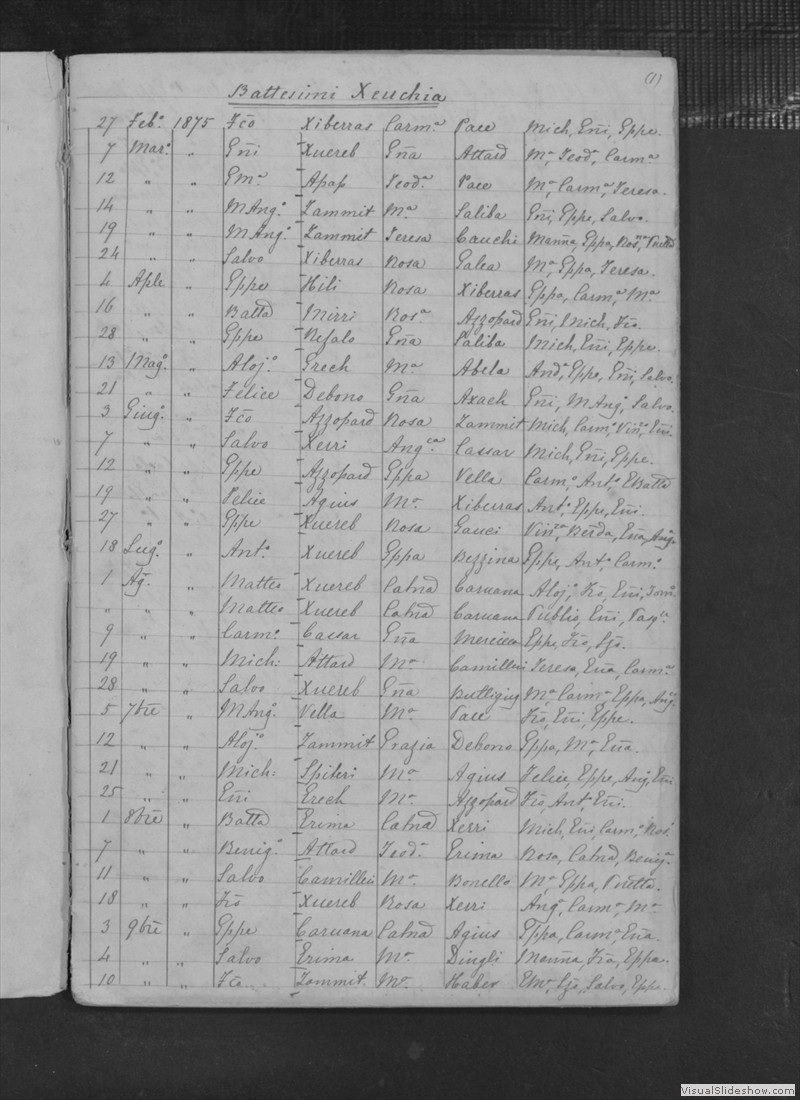 (1)
Battesimi Xeuchia
27 Feb.º 1875 Fcõ Xiberras Carm.ª Pace Mich, Eñi, Eppe.
7 Mar.º „ Eñi Xuereb Eña Attard M.ª Teod.ª Carm.ª
12 „ „ Em.ˡ Apap Teod.ª Pace M.ª, Carm.ª, Teresa.
14 „ „ M Ang.º Zammit M.ª Saliba Eñi, Eppe, Salvo.
19 „ „ M Ang.º Zammit Teresa Cauchi Manña, Eppa, Ros.ª,
24 „ „ Salvo Xiberras Rosa Galea M.ª, Eppa, Teresa.
4 Aple „ Eppe Hili Rosa Xiberras Eppa, Carm.ª, M.ª
16 „ „ Battã Mirri Ros.ª Azzopard Eñi, Mich, Fcõ.
28 „ „ Eppe Refalo Eña Saliba Mich, Eñi, Eppe.
13 Mag.º „ Aloj.º Grech M.ª Abela And.ª, Eppe, Eñi, Salvo.
21 „ „ Felice Debono Eña Axiack Eñi, M Ang.º, Salvo.
3 Giug.º „ Fcõ Azzopard Rosa Zammit Mich, Carm.º, Viñ.º, Eñi.
7 „ „ Salvo Xerri Ang.ca Cassar Mich, Eñi, Eppe.
12 „ „ Eppe Azzopard Eppa Vella Carm.º, Ant.º, GBattã
19 „ „ Felice Agius M.ª Xiberras Ant.º, Eppe, Eñi.
27 „ „ Eppe Xuereb Rosa Gauci Viñ.ª, Berdã, Eña, Ang.ª
18 Lug.º „ Ant.º Xuereb Eppa Bezzina Eppe, Ant.º, Carm.º
1 Ag. „ Matteo Xuereb Catnã Caruana Aloj.º, Fcõ, Eñi,
„ „ „ Matteo Xuereb Catnã Caruana Publio, Eñi, Pasq.le
9 „ „ Carm.º Cassar Eña Mercieca Eppe, Fcõ,
19 „ „ Mich: Attard M.ª Camilleri Teresa, Eña, Carm.ª
28 „ „ Salvo Xuereb Eña Buttigieg M.ª, Carm.ª, Eppa, Ang.ª
5 7bre „ M Ang.º Vella M.ª Pace Fcõ, Eñi, Eppe.
12 „ „ Aloj.º Zammit Grazia Debono Eppa, M.ª, Eña.
21 „ „ Mich: Spiteri M.ª Agius Felice, Eppe, Ang.º, Eñi
25 „ „ Eñi Grech M.ª Azzopard Fcõ, Ant.º, Eñi.
1 8bre „ Battã Grima Catnã Xerri Mich, Eñi, Carm.º, Ros.º
7 „ „ Benig.º Attard Teod.ª Grima Rosa, Catnã, Benig.ª
11 „ „ Salvo Camilleri M.ª Bonello M.ª, Eppa,
18 „ „ Fcõ Xuereb Rosa Xerri Ang.ª, Carm.ª, M.ª
3 9bre „ Eppe Caruana Catnã Agius Eppa, Carm.ª, Eña.
4 „ „ Salvo Grima M.ª Dingli Manña, Fcã, Eppa.
10 „ „ Fcõ Zammit M.ª Haber Em.ˡ, Salvo, Eppe.
VisualSlideshow.com